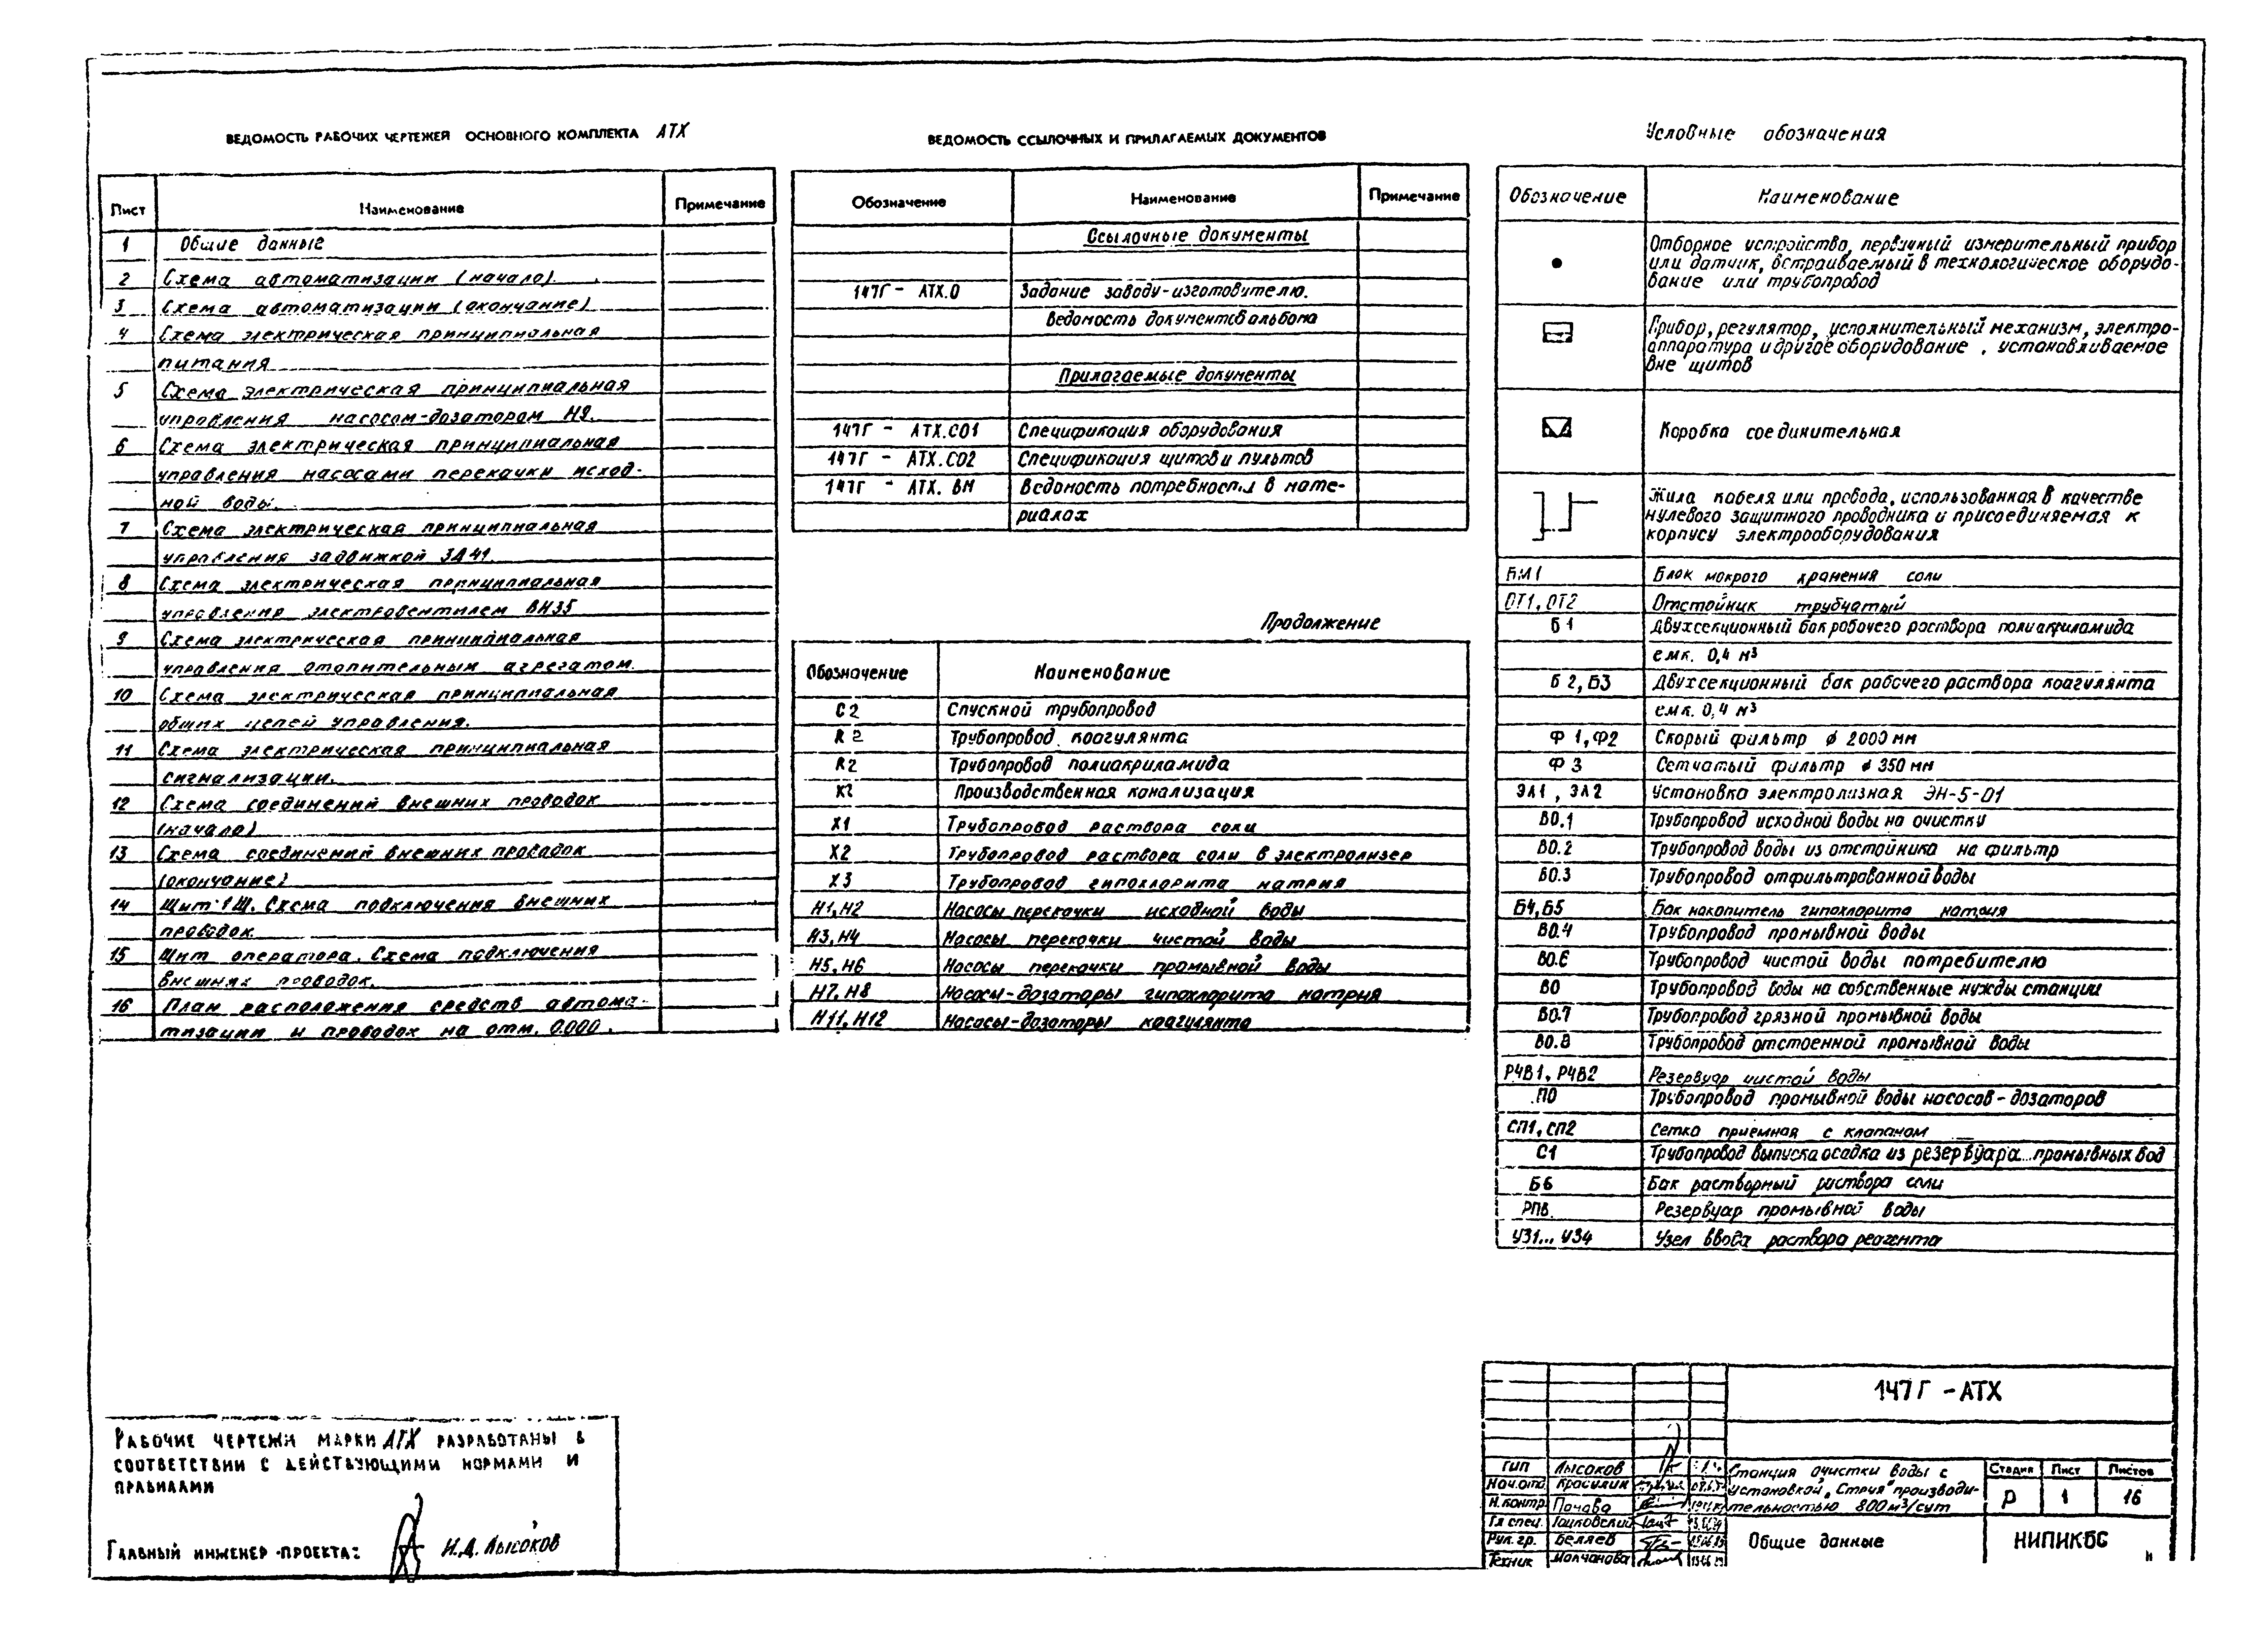 ВЕДОМОСТЬ РАБОЧИХ ЧЕРТЕЖЕЙ ОСНОВНОГО КОМПЛЕКТА АТХ
Лист Наименование Примечание
1 Общие данные
2 Схема автоматизации (начало).
3 Схема автоматизации (окончание)
4 Схема электрическая принципиальная
питания
5 Схема электрическая принципиальная
управления насосом-дозатором Н9.
6 Схема электрическая принципиальная
управления насосами перекачки исход-
ной воды.
7 Схема электрическая принципиальная
управления задвижкой ЗД41.
8 Схема электрическая принципиальная
управления электровентилем ВН35
9 Схема электрическая принципиальная
управления отопительным агрегатом.
10 Схема электрическая принципиальная
общих цепей управления.
11 Схема электрическая принципиальная
сигнализации.
12 Схема соединений внешних проводок
(начало)
13 Схема соединений внешних проводок
(окончание)
14 Щит 1Щ. Схема подключения внешних
проводок.
15 Щит оператора. Схема подключения
внешних проводок.
16 План расположения средств автома-
тизации и проводок на отм. 0.000.
ВЕДОМОСТЬ ССЫЛОЧНЫХ И ПРИЛАГАЕМЫХ ДОКУМЕНТОВ
Обозначение Наименование Примечание
Ссылочные документы
147Г - АТХ.0 Задание заводу-изготовителю.
Ведомость документов альбома
Прилагаемые документы
147Г - АТХ.СО1 Спецификация оборудования
147Г - АТХ.СО2 Спецификация щитов и пультов
147Г - АТХ.ВМ Ведомость потребности в мате-
риалах
Продолжение
Обозначение Наименование
С2 Спускной трубопровод
R2 Трубопровод коагулянта
R2 Трубопровод полиакриламида
Производственная канализация
Х1 Трубопровод раствора соли
Х2 Трубопровод раствора соли в электролизер
Х3 Трубопровод гипохлорита натрия
Н1,Н2 Насосы перекачки исходной воды
Н3,Н4 Насосы перекачки чистой воды
Н5,Н6 Насосы перекачки промывной воды
Н7,Н8 Насосы-дозаторы гипохлорита натрия
Н11,Н12 Насосы-дозаторы коагулянта
Условные обозначения
Обозначение Наименование
Отборное устройство, первичный измерительный прибор
или датчик, встраиваемый в технологическое оборудо-
вание или трубопровод
Прибор, регулятор, исполнительный механизм, электро-
аппаратура и другое оборудование, установливаемое
вне щитов
Коробка соединительная
Жила кабеля или провода, использованная в качестве
нулевого защитного проводника и присоединяемая к
корпусу электрооборудования
БМ1 Блок мокрого хранения соли
ОТ1, ОТ2 Отстойник трубчатый
Б1 Двухсекционный бак рабочего раствора полиакриламида
емк. 0,4 м³
Б2, Б3 Двухсекционный бак рабочего раствора коагулянта
емк. 0,4 м³
Ф1,Ф2 Скорый фильтр ø 2000 мм
Ф3 Сетчатый фильтр ø 350 мм
ЭЛ1, ЭЛ2 Установка электролизная ЭН-5-01
В0.1 Трубопровод исходной воды на очистку
В0.2 Трубопровод воды из отстойника на фильтр
В0.3 Трубопровод отфильтрованной воды
Б4,Б5 Бак накопитель гипохлорита натрия
В0.4 Трубопровод промывной воды
В0.6 Трубопровод чистой воды потребителю
В0 Трубопровод воды на собственные нужды станции
В0.7 Трубопровод грязной промывной воды
В0.8 Трубопровод отстоенной промывной воды
РЧВ1, РЧВ2 Резервуар чистой воды
ПО Трубопровод промывной воды насосов-дозаторов
СП1, СП2 Сетка приемная с клапаном
С1 Трубопровод выпуска осадка из резервуара промывных вод
Б6 Бак растворный раствора соли
РПВ. Резервуар промывной воды
УЗ1... УЗ4 Узел ввода раствора реагента
РАБОЧИЕ ЧЕРТЕЖИ МАРКИ АТХ РАЗРАБОТАНЫ В
СООТВЕТСТВИИ С ДЕЙСТВУЮЩИМИ НОРМАМИ И
ПРАВИЛАМИ
ГЛАВНЫЙ ИНЖЕНЕР ПРОЕКТА: Н.Д. Лысоков
147Г - АТХ
ГИП Лысоков
Нач.отд. Красулин
Н.контр. Почова
Гл.спец. Гацковский
Рук. гр. Беляев
Техник Молчанова
Станция очистки воды с
установкой „Струя" производи-
тельностью 800 м³/сут
Стадия Лист Листов
Р 1 16
Общие данные
НИПИКБС